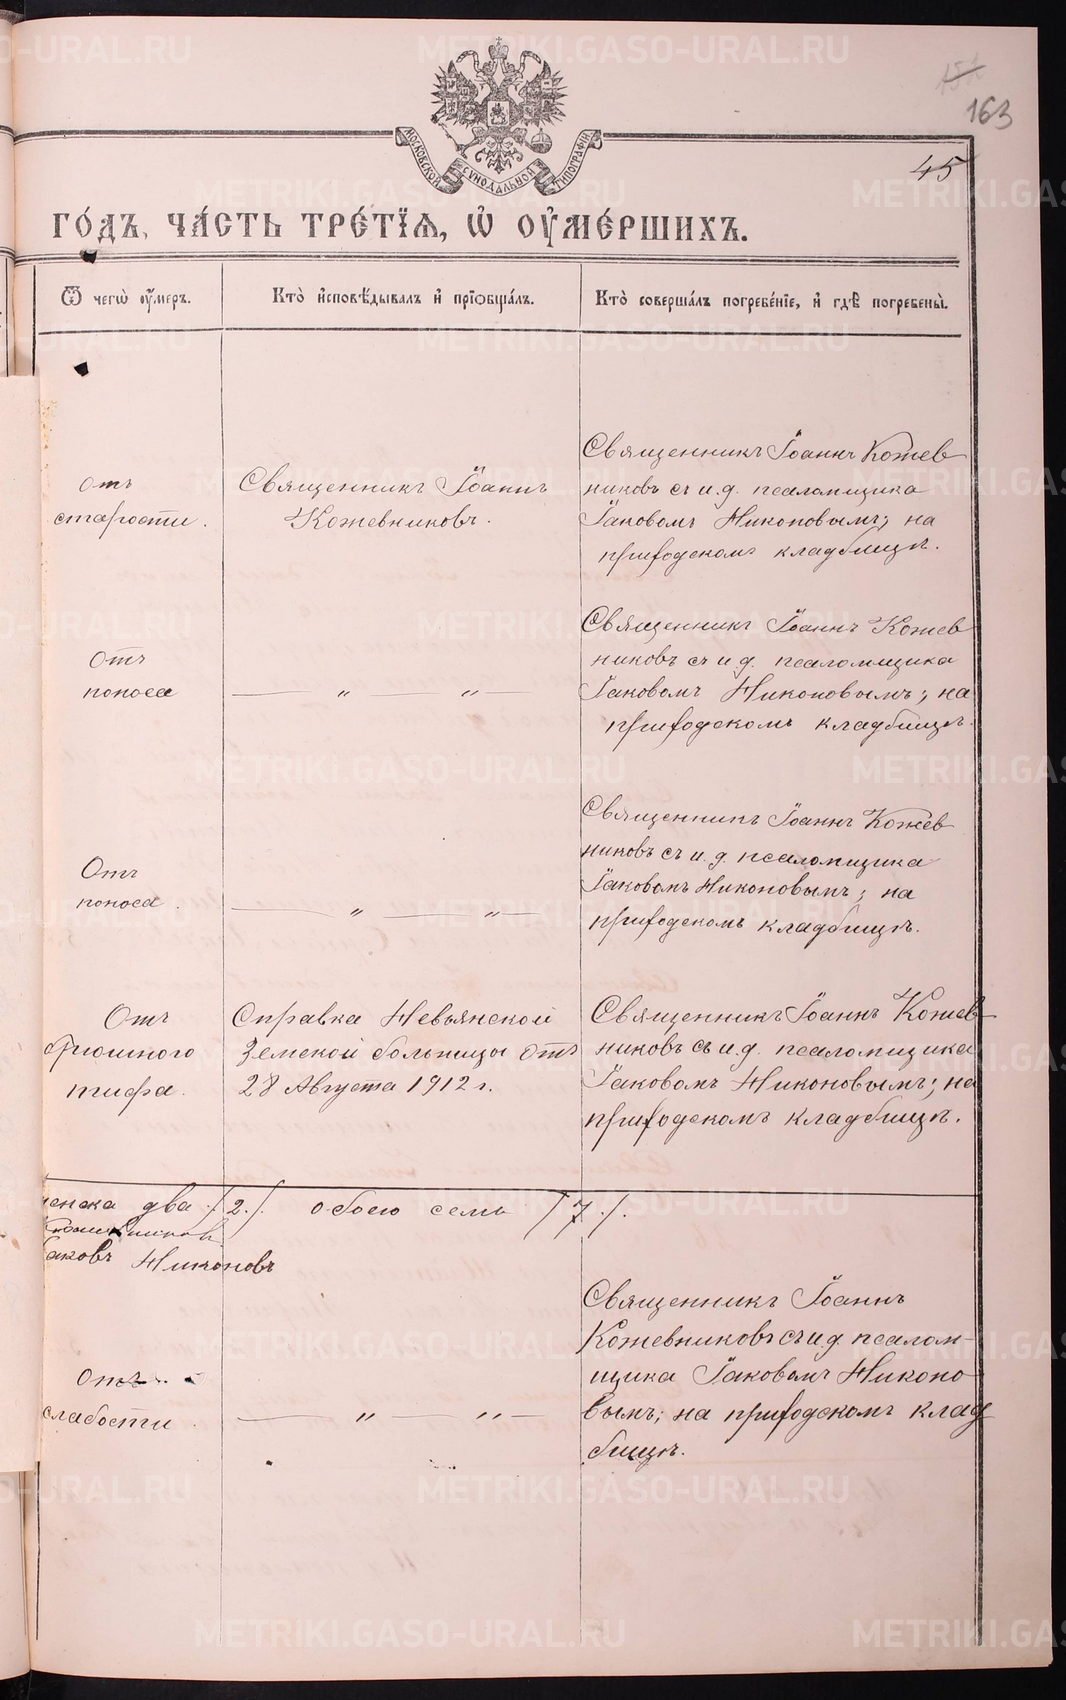 163
45
МОСКОВСКОЙ СѴНОДАЛЬНОЙ ТИПОГРАФІИ
ГО́ДЪ, ЧА́СТЬ ТРЕ́ТЇѦ, Ѡ҆ ОУ҆МЕ́РШИХЪ.
Ѿ чегѡ̀ оу҆́меръ.
Кто̀ и҆сповѣ́дывалъ и҆ прїѡбща́лъ.
Кто̀ соверша́лъ погребе́нїе, и҆ гдѣ̀ погребены̀.
Отъ
старости.
Священникъ Іоаннъ
Кожевниковъ.
Священникъ Іоаннъ Кожев
никовъ съ и.д. псаломщика
Іаковомъ Никоновымъ; на
приходскомъ кладбищѣ.
Отъ
поноса
— " — " —
Священникъ Іоаннъ Кожев
никовъ съ и.д. псаломщика
Іаковомъ Никоновымъ; на
приходскомъ кладбищѣ.
Отъ
поноса.
— " — " —
Священникъ Іоаннъ Кожев
никовъ съ и.д. псаломщика
Іаковомъ Никоновымъ; на
приходскомъ кладбищѣ.
Отъ
брюшного
тифа.
Справка Невьянской
Земской больницы отъ
28 Августа 1912 г.
Священникъ Іоаннъ Кожев
никовъ съ и.д. псаломщика
Іаковомъ Никоновымъ; на
приходскомъ кладбищѣ.
женска два /2./. обоего семь /7./.
аковъ Никоновъ
Отъ
слабости.
— " — " —
Священникъ Іоаннъ
Кожевниковъ съ и.д. псалом-
щика Іаковомъ Никоно
вымъ; на приходскомъ клад
бищѣ.
METRIKI.GASO-URAL.RU